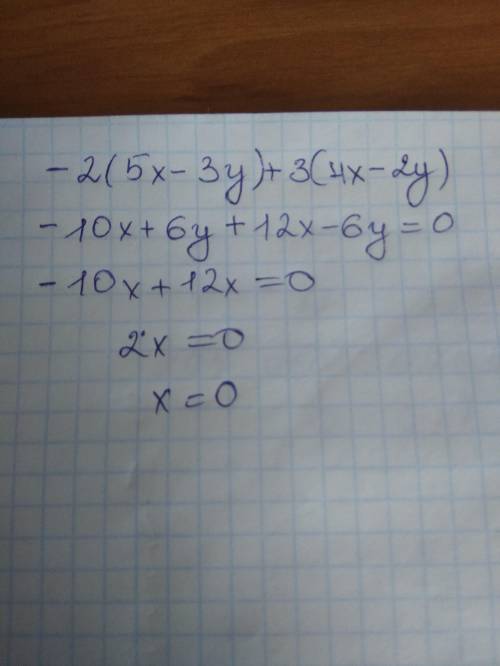 -2(5x-3y)+3(4x-2y)
-10x+6y+12x-6y=0
-10x+12x=0
2x=0
x=0